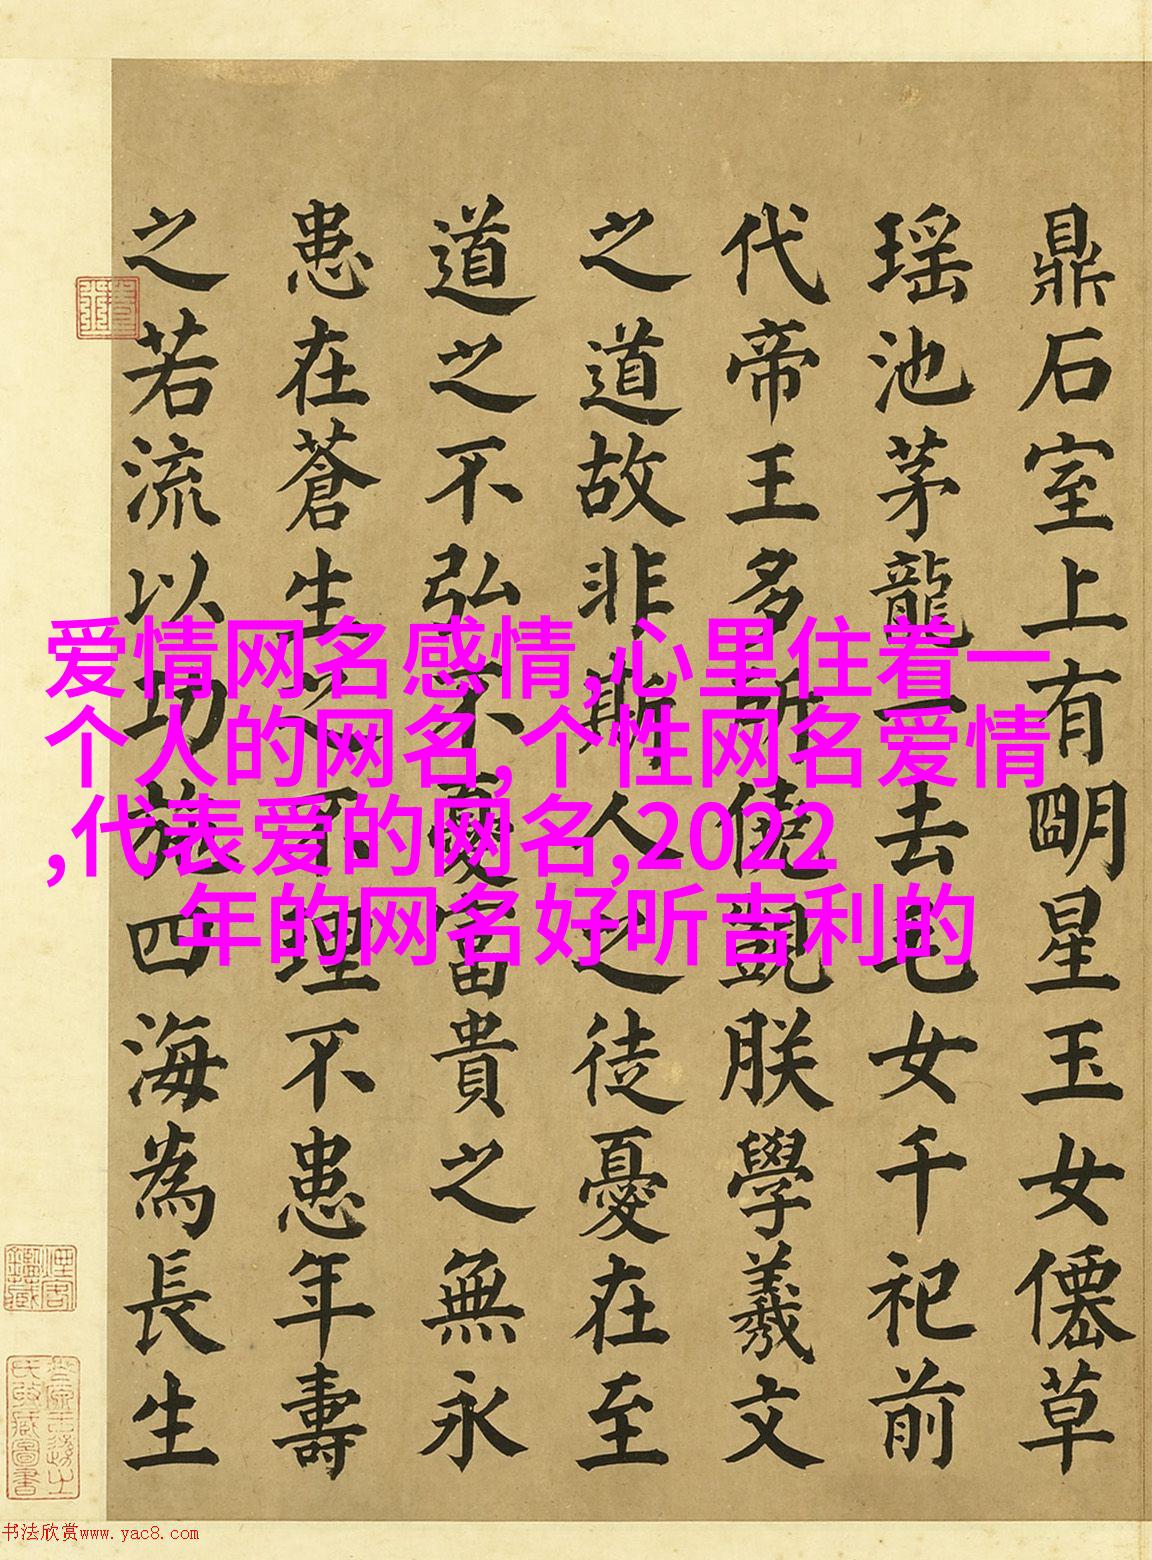 鼎石室上有朙星玉女僊草
瑶池茅龍一去毛女千祀前
代帝王多所僥覬朕學羲文
之道故非斯人之徒憂在至
道之不弘不憂富貴之無永
患在蒼生之不理不患年壽
之若流以功施四海為長生
爱情网名感情,心里住着一
个人的网名,个性网名爱情
,代表爱的网名,2022
年的网名好听吉利的
书法欣赏www.yac8.com